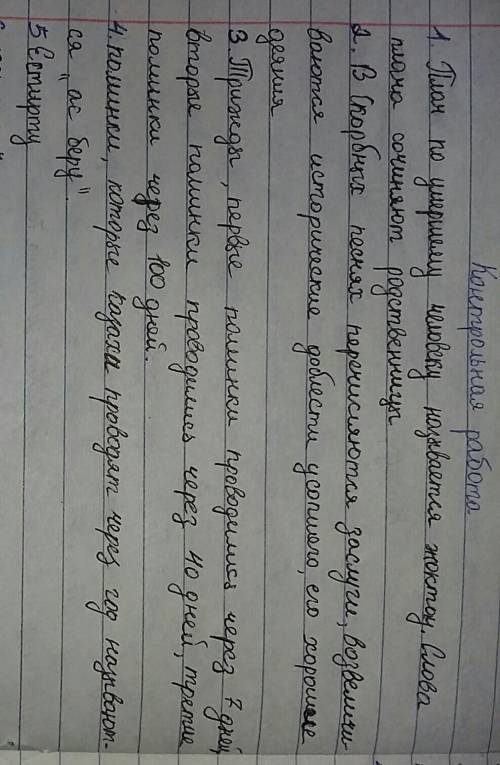 Контрольная работа
1. Плач по умершему человеку называется жоктау. Слова
плача сочиняют родственницы
2. В скорбных песнях перечисляются заслуги, возвеличи-
ваются исторические доблести усопшего, его хорошие
деяния
3. Трижды, первые поминки проводились через 7 дней,
вторые поминки проводились через 40 дней, третие
поминки через 100 дней.
4. поминки, которые казахи проводят через год называют-
ся "ас беру".
5 Естирту